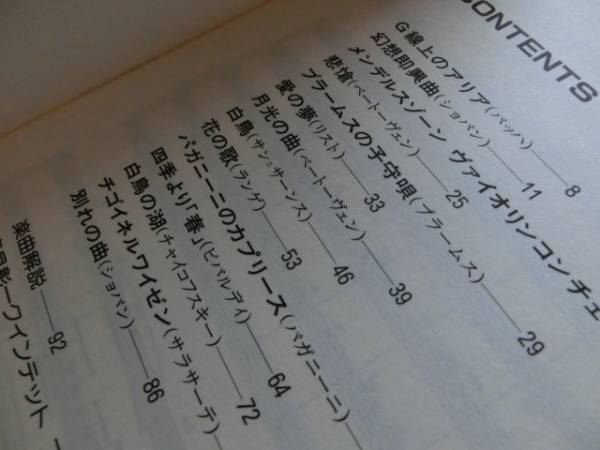 CONTENTS
G線上のアリア(バッハ)――8
幻想即興曲(ショパン)――11
メンデルスゾーン ヴァイオリンコンチェ
悲愴(ベートーヴェン)――25
ブラームスの子守唄(ブラームス)――29
愛の夢(リスト)――33
月光の曲(ベートーヴェン)――39
白鳥(サン=サーンス)――46
花の歌(ランゲ)――53
パガニーニのカプリース(パガニーニ)――
四季より「春」(ビバルディ)――64
白鳥の湖(チャイコフスキー)――72
チゴイネルワイゼン(サラサーテ)――
別れの曲(ショパン)――86
楽曲解説――92
ークインテット